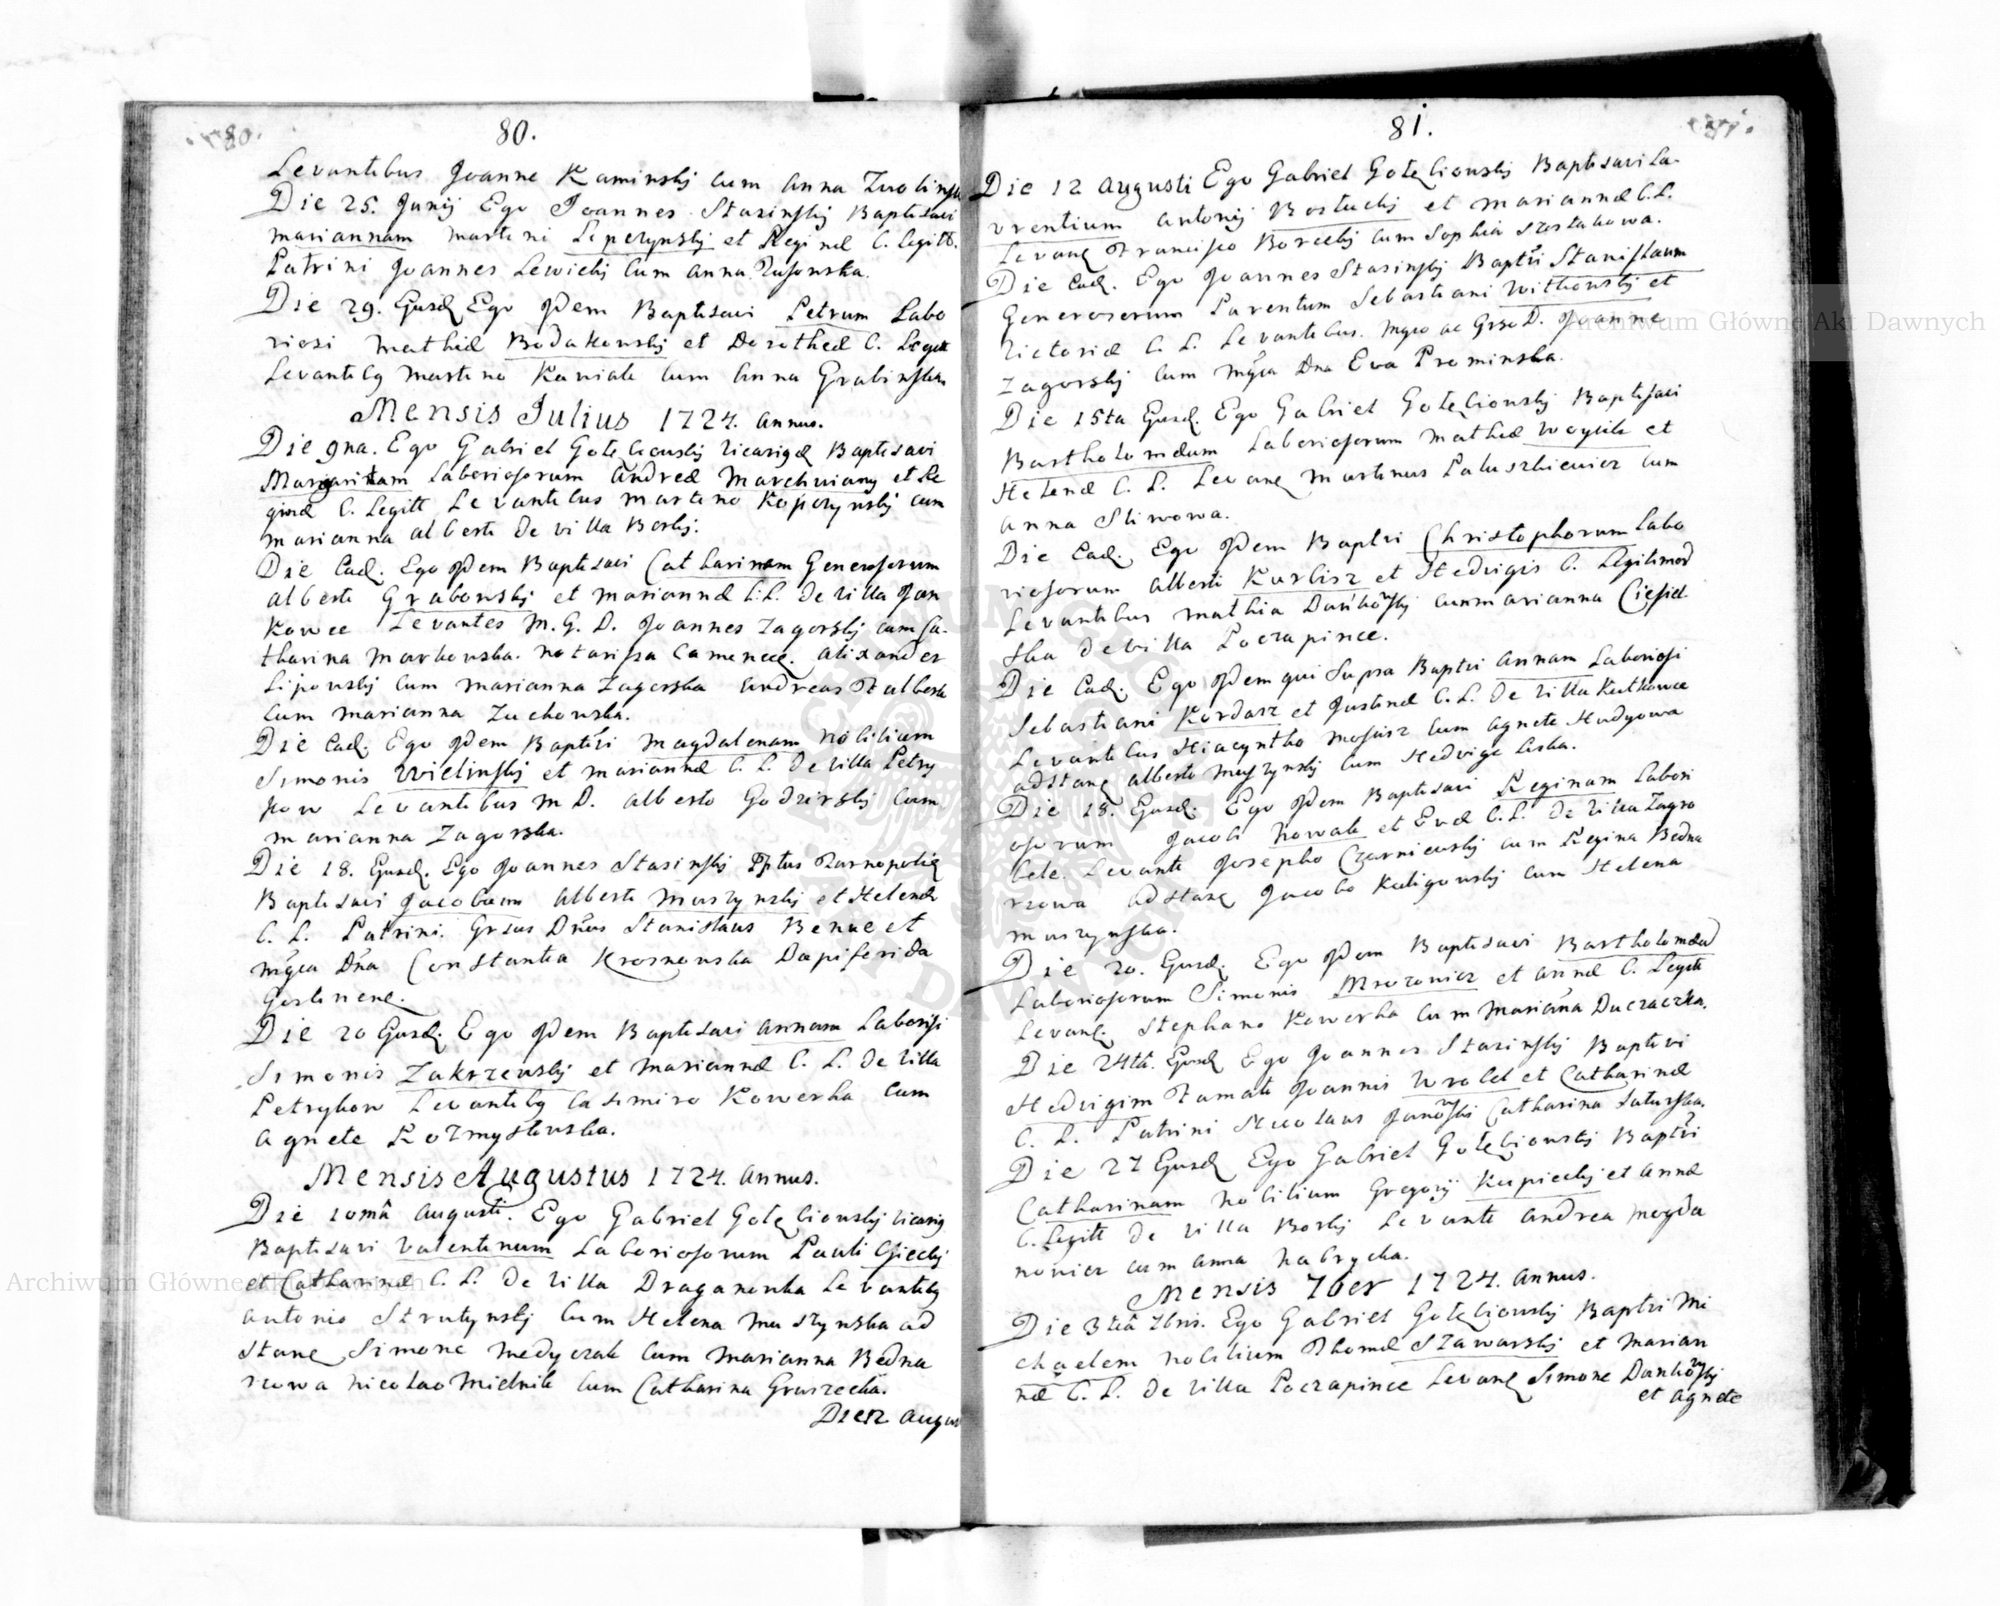 80.
Levantibus Joanne Kaminskij cum Anna
Die 25. Junij Ego Joannes Stasinskij Baptisavi
Mariannam Martini Lepczynskij et Reginæ C. Legitt.
Patrini Joannes Lewickij cum Anna
Die 29. Ejusd Ego Idem Baptisavi Petrum Labo
riosi Mathiæ Bodakowskij et Dorotheæ C. Legitt
Levantibq Martino Kawiak cum Anna Grabinska
Mensis Julius 1724. Annus.
Die 9na. Ego Gabriel Gołęciowskij Vicarigæ Baptisavi
Margaritam Laboriosorum Andreæ Marchwiany et Re
ginæ C. Legitt Levantibus Martino Kopczynskij cum
Marianna Alberti de villa Borkij.
Die Ead. Ego Idem Baptisavi Catharinam Generosorum
Alberti Grabowskij et Mariannæ C. L. De Villa Jan
kowce Levantes M. G. D. Joannes Zagorskij cum Ca-
tharina Markowska. Notarissa Camenec. Alixander
Lipowskij cum Marianna Zagorska Andreas
cum Marianna Zuchowska.
Die Ead. Ego Idem Baptizi Magdalenam Nobilium
Simonis Wielinskij et Mariannæ C. L. De Villa Petry
kow Levantibus M D. Alberto Godzirskij cum
Marianna Zagorska.
Die 18. Ejusd. Ego Joannes Stasinskij Pptus Tarnopoliæ
Baptisavi Jacobum Alberti Muszynskij et Helenæ
C. L. Patrini. Grsus Dnus Stanislaus Benue et
Mgca Dna Constantia Krosnowska Dapiferida
Gostinenc.
Die 20 Ejusd. Ego Idem Baptisavi Annam Laboriosi
Simonis Zakrzewskij et Mariannæ C. L. De Villa
Petrykow Levantibq Casimiro Kowerka cum
Agnete Rozmysłowska.
Mensis Augustus 1724. Annus.
Die 10mâ Augusti. Ego Gabriel Gołęciowskij Vicarig
Baptisavi Valentinum Laboriosorum Pauli Osieckij
et Catharinæ C. L. De Villa Draganowka Levantibq
Antonio Strutynskij cum Helena Muszynska ad
stanc Simone Medyczak cum Marianna Bedna
rzowa Nicolao Mielnik cum Catharina Gruszecka.
Die 12 Augus
81.
Die 12 Augusti Ego Gabriel Gołęciowskij Baptisavi La-
vrentium Antonij Rostuckij et Mariannæ C. L.
Levanc Francisco Boreckij cum Sophia Szostakowa.
Die Ead. Ego Joannes Stasinskij Baptizi Stanislaum
Generosorum Parentum Sebastiani Witkowskij et
Victoriæ C. L. Levantibus. Mgco ac Grso D. Joanne
Zagorskij cum Mgca Dna Eva Prominska.
Die 15ta Ejusd. Ego Gabriel Gołęciowskij Baptisavi
Bartholomæum Laboriosorum Mathiæ Woycik et
Helenæ C. L. Levanc Martinus Paluszkiewicz cum
Anna Sliwowa.
Die Ead. Ego Idem Baptvi Christophorum Labo
riosorum Alberti Kurbisz et Hedvigis C. Legitimor
Levantibus Mathia Dańkowskij cum Marianna Ciesiel
ska De Villa Poczapince.
Die Ead. Ego Idem qui Supra Baptvi Annam Laboriosi
Sebastiani Kordasz et Justinæ C. L. De Villa Kutkowce
Levantibus Hiacyntho Mosisz cum Agnete Hudyowa
adstanc Alberto Muszynskij cum Hedvige Liska.
Die 18. Ejusd. Ego Idem Baptisavi Reginam Labori
osorum Jacobi Nowak et Evæ C. L. De Villa Zagro
bele. Levante Josepho Czarnieuskij cum Regina Bedna
rzowa adstanc Jacobo Kuligowskij cum Helena
Muszynska.
Die 20. Ejusd. Ego Idem Baptisavi Bartholomæu
Laboriosorum Simonis Mrozowicz et Annæ C. Legitt
Levanc. Stephano Kowerka cum Marianna Duczaczka.
Die 24ta. Ejusd Ego Joannes Stasinskij Baptivi
Hedvigim Famati Joannis Wrobel et Catharinæ
C. L. Patrini Nicolaus Janowskij Catharina
Die 27 Ejusd Ego Gabriel Gołęciowskij Baptizi
Catharinam Nobilium Gregorij Kupieckij et Annæ
C. Legitt de Villa Borkij Levante Andrea Mogda
nowicz cum Anna Nabrycka.
Mensis 7ber 1724. Annus.
Die 3tiâ 7bris. Ego Gabriel Gołęciowskij Baptvi Mi
chaelem Nobilium Thomæ Stawarskij et Marian
næ C. L. De Villa Poczapince Levanc Simone Dankowskij
et Agnete
Archiwum Główne Akt Dawnych
Archiwum Główne Akt Dawnych